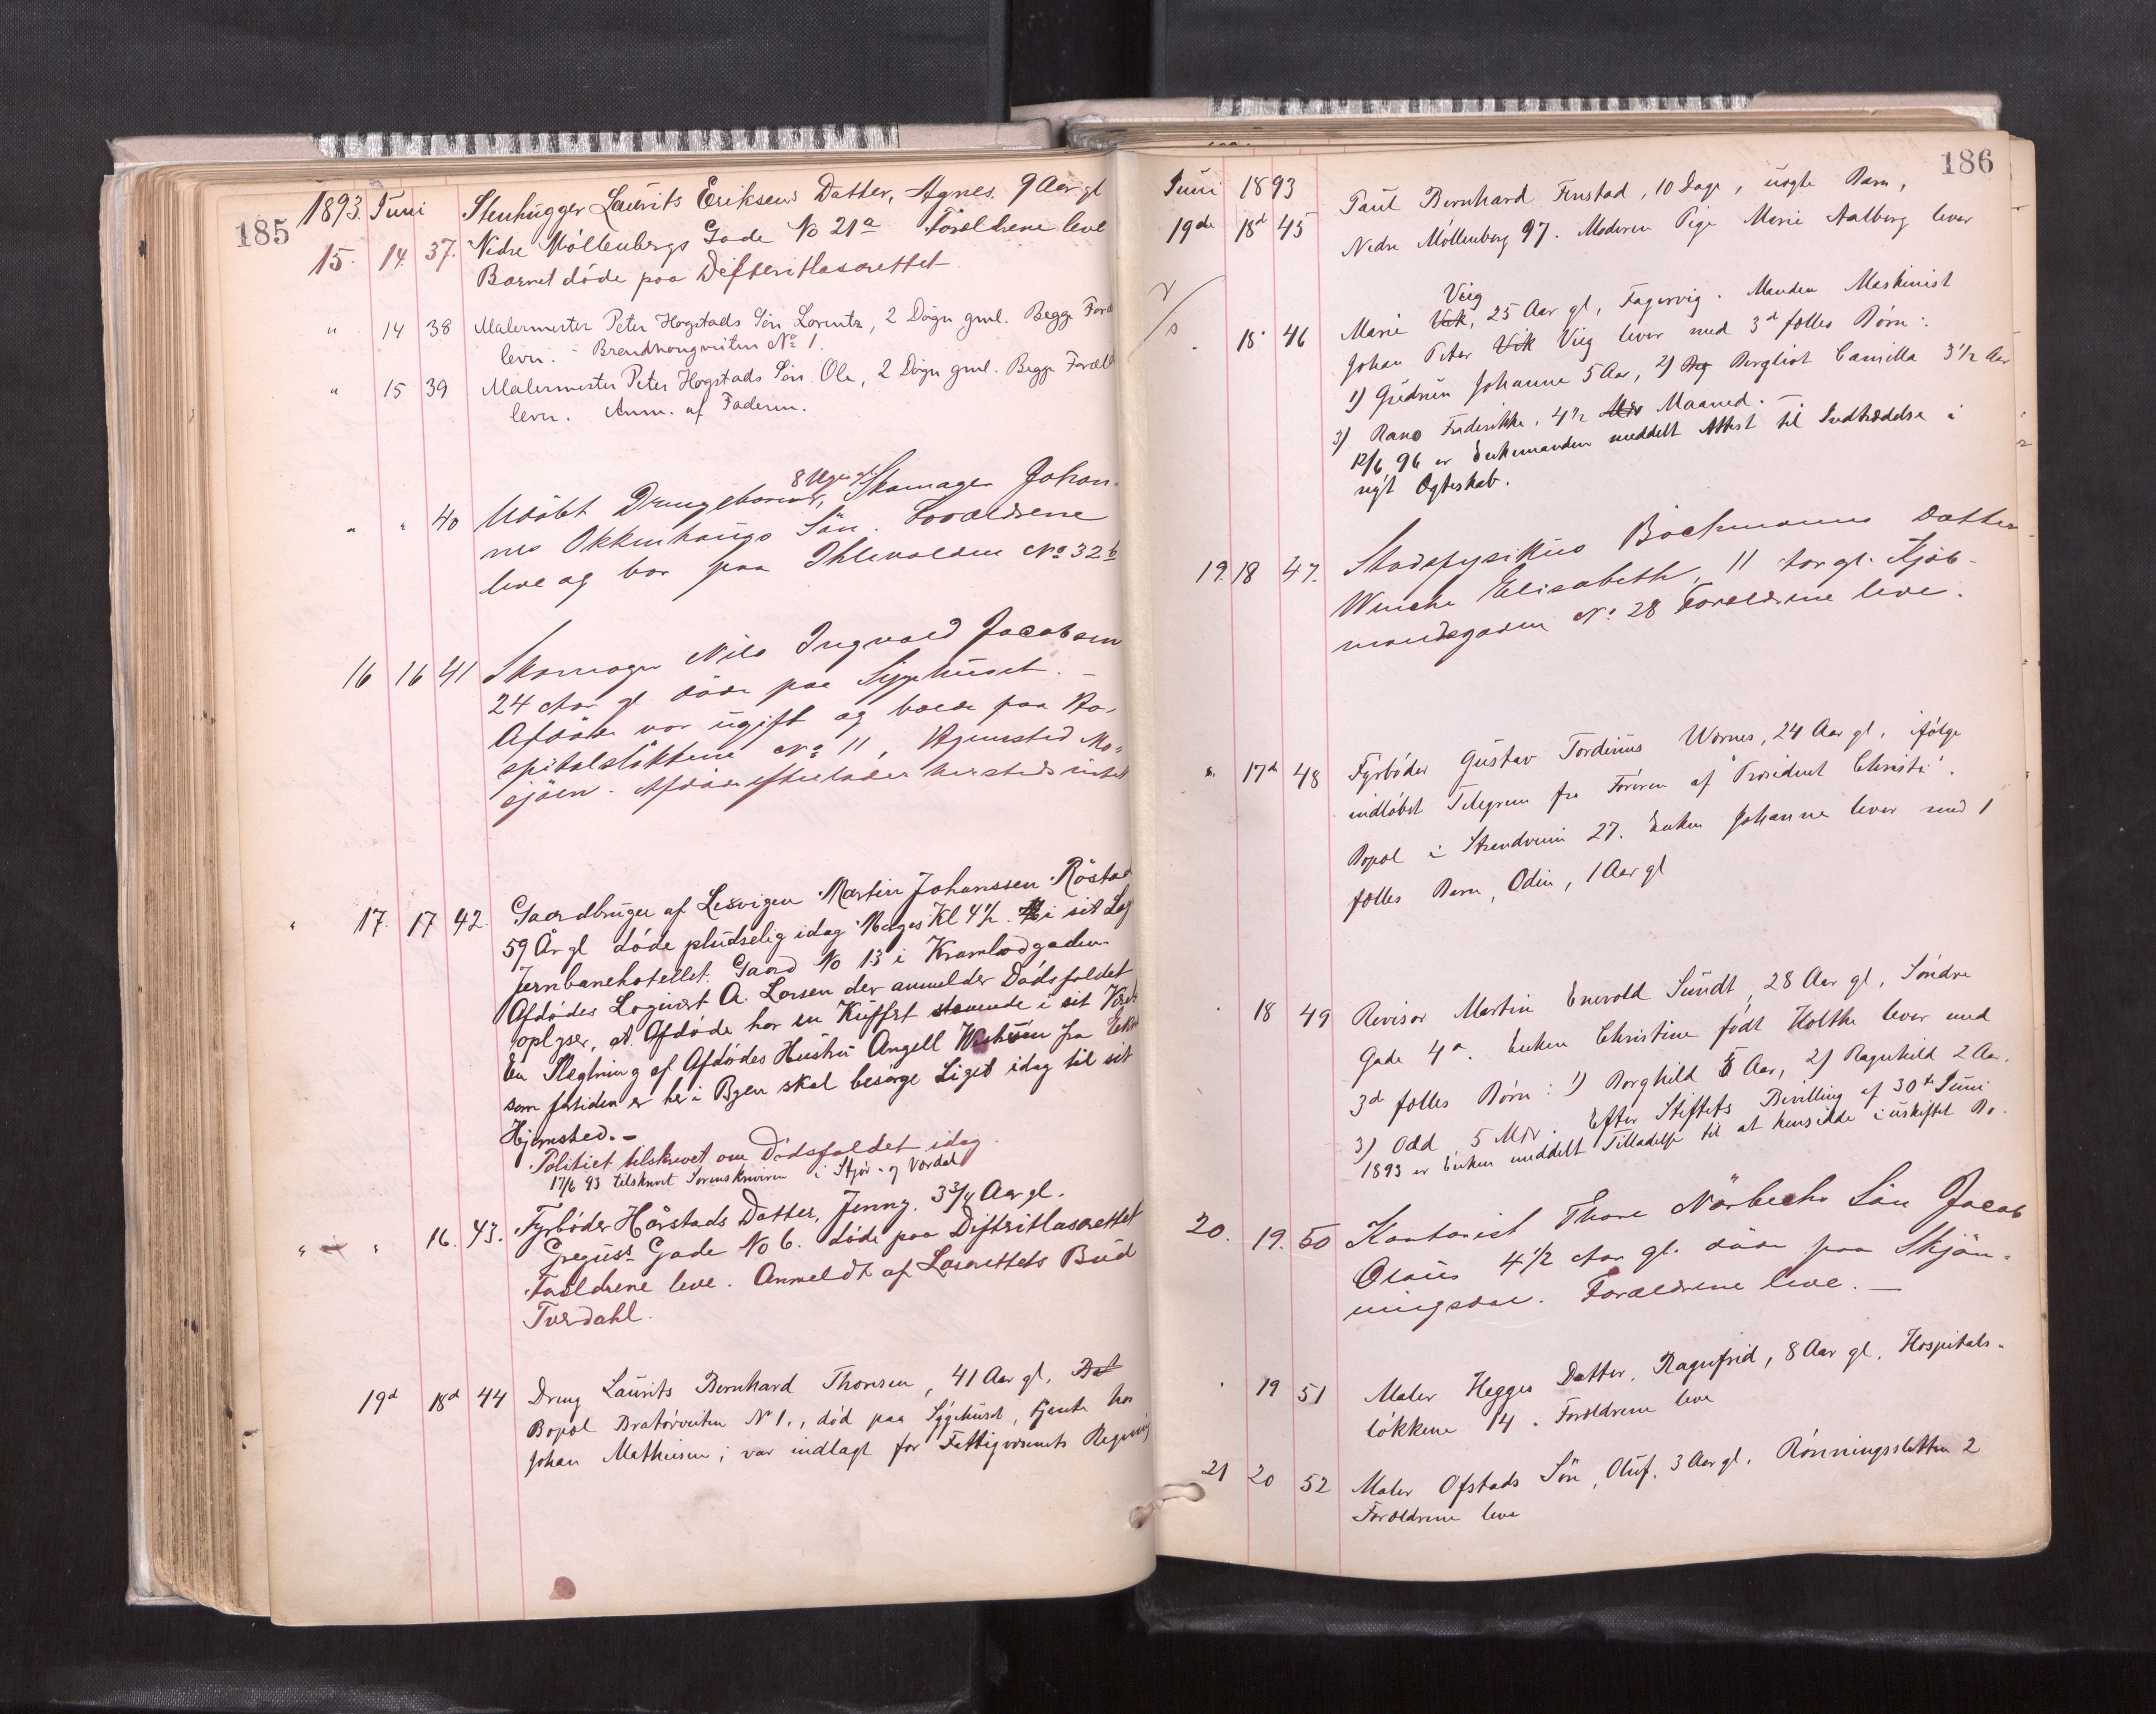 185
1893. Juni Stenhugger Laurits Eriksens Datter, Agnes. 9 Aar gl
15. 14. 37. Nedre Möllenbergs Gade No 21a Forældrene leve
Barnet döde paa Difteritlasarettet
" 14 38 Malermester Peter Hogstads Sön Lorentz, 2 Dögn gml. Begge
lever. - Brendhougveiten No 1.
" 15 39 Malermester Peter Hogstads Sön Ole, 2 Dögn gml. Begge
lever. Anm. af Faderen.
8 Uger gl.
" " 40 Udöbt Drengebarn, Skomager Johan-
nes Okkenhaugs Sön. Forældrene
leve og bor paa Ihlevolden No 32 b
16 16 41 Skomager Nils Ingvald Jacobsen
24 Aar gl döde paa Sygehuset. -
Afdöde var ugift og boede paa Ho-
spitalslökkene No 11, Hjemsted Mo-
sjöen. Afdöde efterlader hersteds intet
" 17. 17 42. Gaardbruger af Lexvigen Martin Johanssen Röstad
59 År gl döde pludselig idag Morges Kl 4 1/2. i sit Log
Jernbanehotellet. Gaard No 13 i Krambodgaden
Afdödes Logivert A. Larsen der anmelder Dödsfaldet
oplyser, at Afdöde har en Kuffert staaende i sit
En Slegtning af Afdödes Hustru Angell fra
som fortiden er her i Byen skal besörge Liget idag til sit
Hjemsted. -
Politiet tilskrevet om Dödsfaldet idag.
17/6 93 tilskrevet Sorenskriveren i Stjör- og Værdal
" " 16. 43. Fyrböder Hårstads Datter, Jenny. 3 3/4 Aar gl.
Greguss Gade No 6. döde paa Difteritlasarettet
Forældrene leve. Anmeldt af Lasarettets Bud
Tverdahl.
19d 18d 44 Dreng Laurits Bernhard Thoresen, 41 Aar gl,
Bopæl Bratörveiten No 1., död paa Sygehuset, tjente hos
Johan Mathiesen; var indlagt for Fattigvæsenets Regning
186
Juni 1893
19de 18d 45 Paul Bernhard Fenstad, 10 Dage, uægte Barn,
Nedre Möllenberg 97. Moderen Pige Marie Aalberg lever
Viig
" 18 46 Marie Vik, 25 Aar gl, Fagervig. Manden Maskinist
Johan Peter Vik Viig lever med 3d fælles Börn:
1) Gudrun Johanne 5 Aar, 2) Bergliot Camilla 3 1/2 Aar
3) Frederikke, 4 1/2 Maaned. -
12/6 96 er Enkemanden meddelt Attest til Indtrædelse i
nyt Ægteskab.
19. 18 47. Stadsfysikus Bachmanns Datter
Wenche Elisabeth, 11 Aar gl. Kjöb-
mandsgaden No 28 Forældrene leve.
" 17d 48 Fyrböder Gustav Tordenius Wærnes, 24 Aar gl, ifölge
indlöbet Telegram fra Föreren af "Præsident Christie".
Bopæl i Strandveien 27. Enken Johanne lever med 1
fælles Barn, Odin, 1 Aar gl
" 18 49 Revisor Martin Enevold Sundt, 28 Aar gl, Söndre
Gade 4a. Enken Christine födt Holthe lever med
3de fælles Börn: 1) Borghild 5 Aar, 2) Ragnhild 2 Aar.
3) Odd 5 Mdr. Efter Stiftets Bevilling af 30te Juni
1893 er Enken meddelt Tilladelse til at hensidde i uskiftet Bo.
20. 19. 50 Kontorist Thore Nörbechs Sön Jacob
Olaus 4 1/2 Aar gl. döde paa Skjön-
ningsdal. Forældrene leve. -
" 19 51 Maler Hegges Datter, Ragnfrid, 8 Aar gl, Hospitals-
lökkene 14. Forældrene leve
21 20 52 Maler Ofstads Sön, Oluf. 3 Aar gl. Rönningssletten 2
Forældrene leve